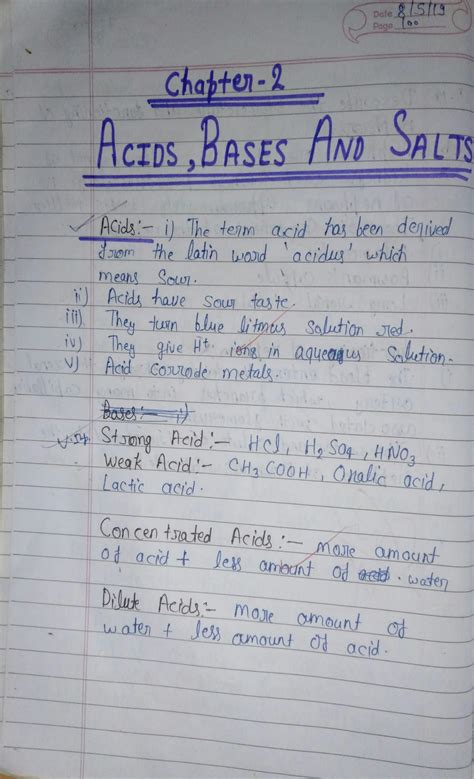 Date 8/5/19
Page 100
Chapter-2
ACIDS, BASES AND SALTS
Acids:- i) The term acid has been derived
from the latin word 'acidus' which
means Sour.
ii) Acids have sour taste.
iii) They turn blue litmus solution red.
iv) They give H+ ions in aqueous Solution.
v) Acid corrode metals.
Bases:- i)
Strong Acid:- HCl, H2SO4, HNO3
Weak Acid:- CH3COOH, Oxalic acid,
Lactic acid.
Concentrated Acids:- more amount
of acid + less amount of acid. water
Dilute Acids:- more amount of
water + less amount of acid.